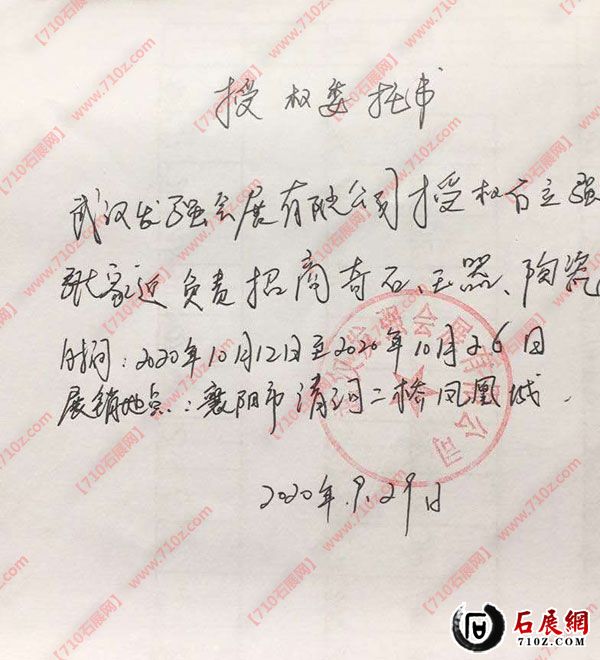 授权委托书
武汉发强会展有限公司授权方立强
张家近负责招商奇石、玉器、陶瓷
时间：2020年10月12日至2020年10月26日
展销地点：襄阳市清河二桥凤凰城.
2020年.9.29日
【710石展网】www.710z.com
石展網
710Z.COM